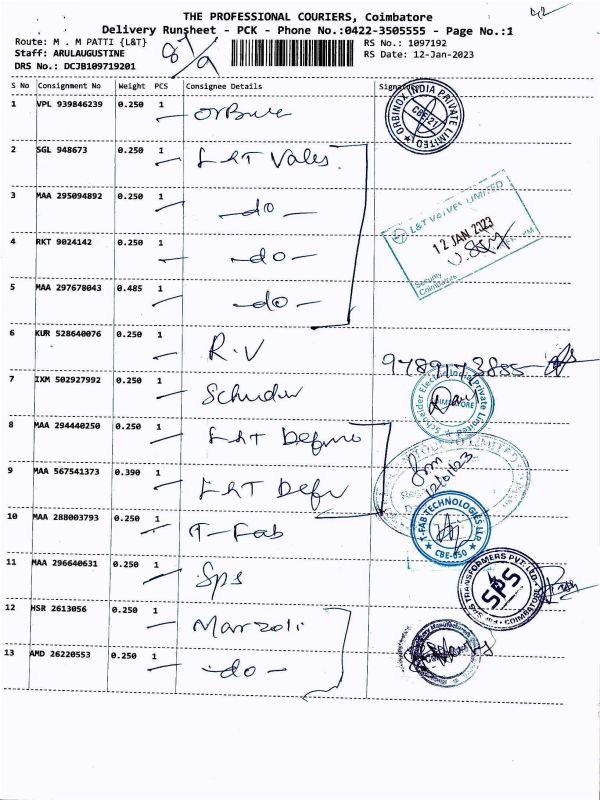 THE PROFESSIONAL COURIERS, Coimbatore
Delivery Runsheet - PCK - Phone No.:0422-3505555 - Page No.:1
Route: M . M PATTI {L&T}
RS No.: 1097192
Staff: ARULAUGUSTINE
RS Date: 12-Jan-2023
DRS No.: DCJB109719201
S No Consignment No Weight PCS Consignee Details Signature
1 VPL 939846239 0.250 1
ORBINOX INDIA PRIVATE LIMITED
CBE-21
2 SGL 948673 0.250 1 L&T Vales
3 MAA 295094892 0.250 1 -do-
L&T VALVES LIMITED
12 JAN 2023
Security
Coimbatore
4 RKT 9024142 0.250 1 -do-
5 MAA 297678043 0.485 1 -do-
6 KUR 528640076 0.250 1 R.V
7 IXM 502927992 0.250 1
Schneider Electric India Private Limited
COIMBATORE
8 MAA 294440250 0.250 1 L&T
9 MAA 567541373 0.390 1 L&T
LIMITED
12/01/23
10 MAA 288003793 0.250 1 T-Fab
T-FAB TECHNOLOGIES LLP
CBE-050
11 MAA 296640631 0.250 1 Sps
SPS TRANSFORMERS PVT. LTD.
SPS
COIMBATORE
12 HSR 2613056 0.250 1 Marzoli
13 AMD 26220553 0.250 1 -do-